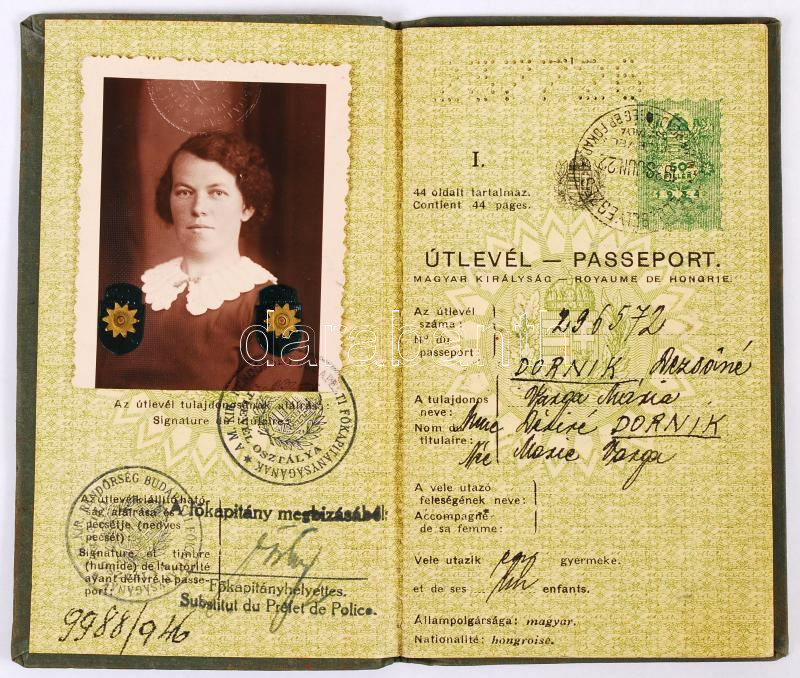 Az útlevél tulajdonosának aláírása:
Signature du titulaire:
Az útlevélkiállító ható-
ság aláírása és
pecsétje (nedves
pecsét):
Signature et timbre
(humide) de l'autorité
ayant délivré le passe-
port:
A főkapitány megbízásából
Főkapitányhelyettes.
Substitut du Préfet de Police.
9988/946
I.
44 oldalt tartalmaz.
Contient 44 pages.
ÚTLEVÉL — PASSEPORT.
MAGYAR KIRÁLYSÁG — ROYAUME DE HONGRIE.
Az útlevél
száma:
Nº du
passeport:
296572
A tulajdonos
neve:
Nom du
titulaire:
DORNIK Dezsőné
Varga Mária
Mme Désiré DORNIK
Née Marie Varga
A vele utazó
feleségének neve:
Accompagné
de sa femme:
Vele utazik gyermeke.
et de ses enfants.
Állampolgársága: magyar.
Nationalité: hongroise.
darabanth